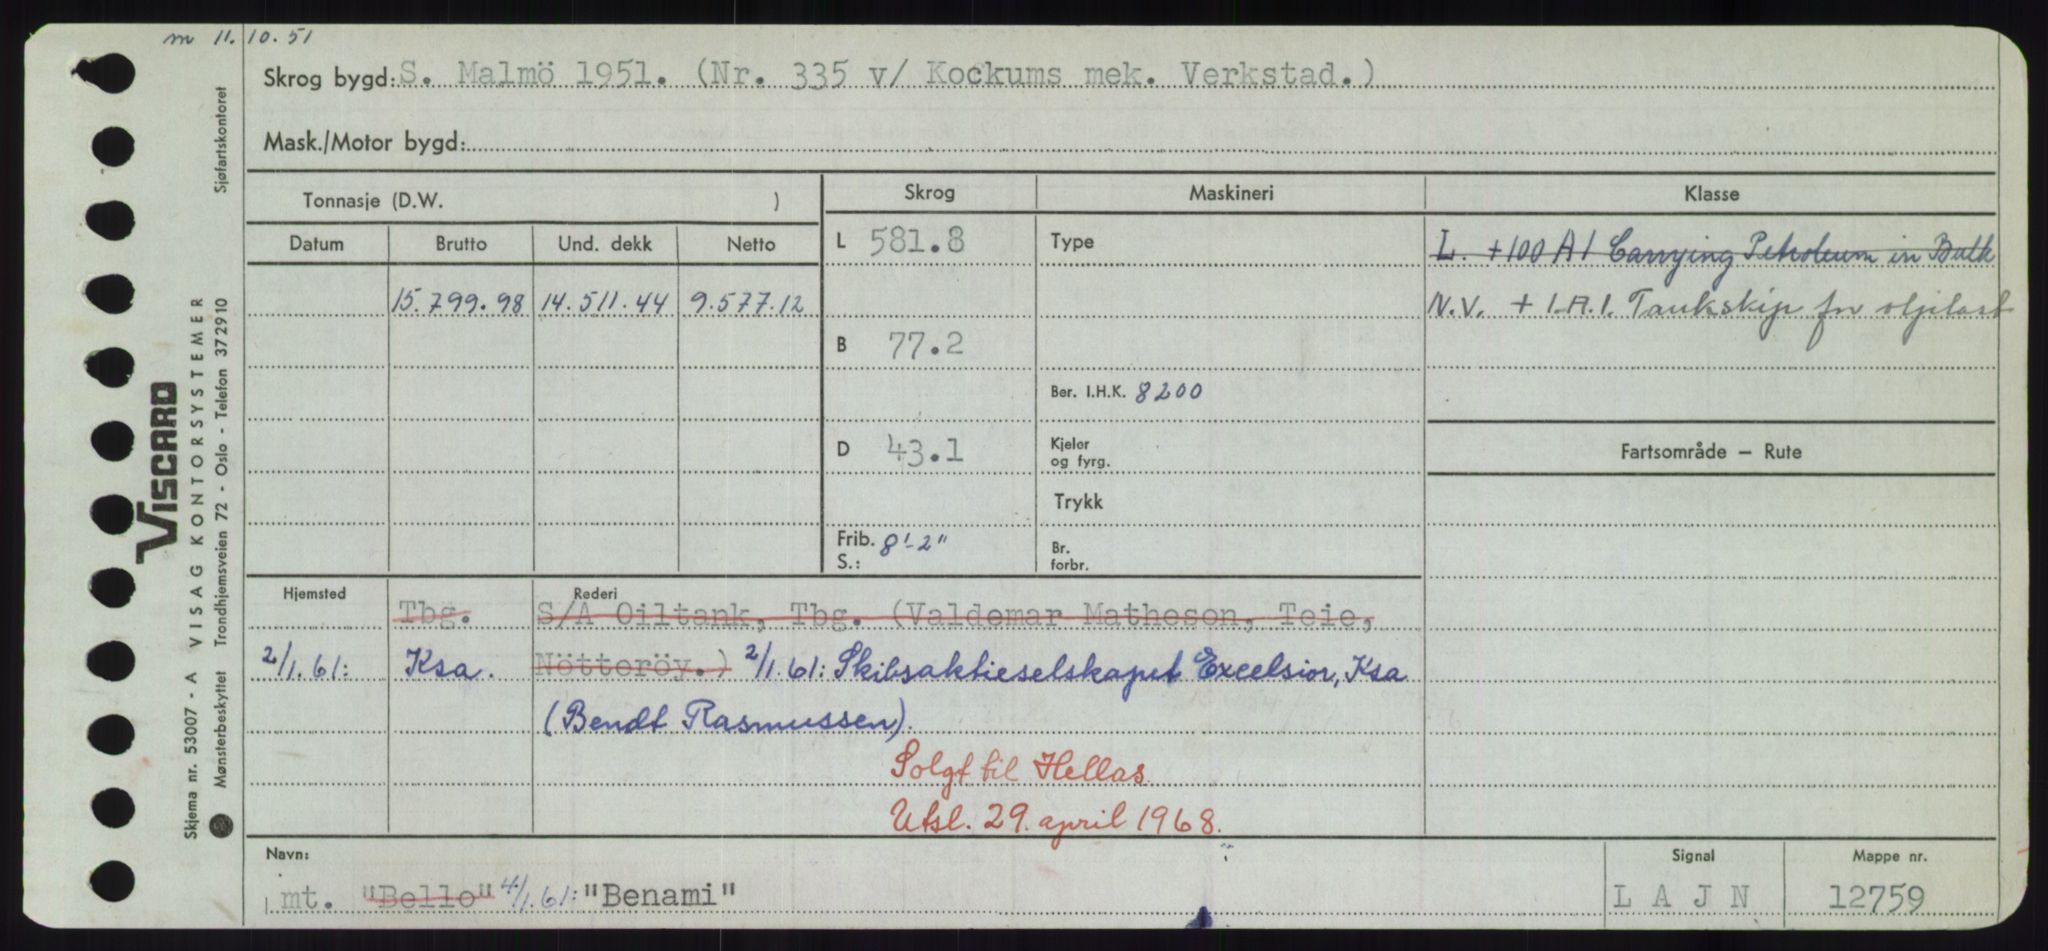 m 11.10.51
Skrog bygd: S. Malmö 1951. (Nr. 335 v/ Kockums mek. Verkstad.)
Mask./Motor bygd:
Tonnasje (D.W. ) Skrog Maskineri Klasse
Datum Brutto Und. dekk Netto L 581.8 Type L. +100 A1 Carrying Petroleum in Bulk
15.799.98 14.511.44 9.577.12 N.V. + 1.A.1. Tankskip for oljelast
B 77.2
Ber. I.H.K. 8200
D 43.1 Kjeler og fyrg. Fartsområde – Rute
Trykk
Frib. S.: 8'-2" Br. forbr.
Hjemsted Rederi
Tbg. S/A Oiltank, Tbg. (Valdemar Matheson, Teie,
2/1.61: Ksa. Nötteröy.) 2/1.61: Skibsaktieselskapet Excelsior, Ksa
(Bendt Rasmussen).
Solgt til Hellas.
Utsl. 29. april 1968.
Navn: Signal Mappe nr.
mt. "Bello" 4/1.61: "Benami" L A J N 12759
Skjema nr. 53007 - A VISAG KONTORSYSTEMER
VISCARD
Mønsterbeskyttet Trondhjemsveien 72 - Oslo - Telefon 372910 Sjøfartskontoret